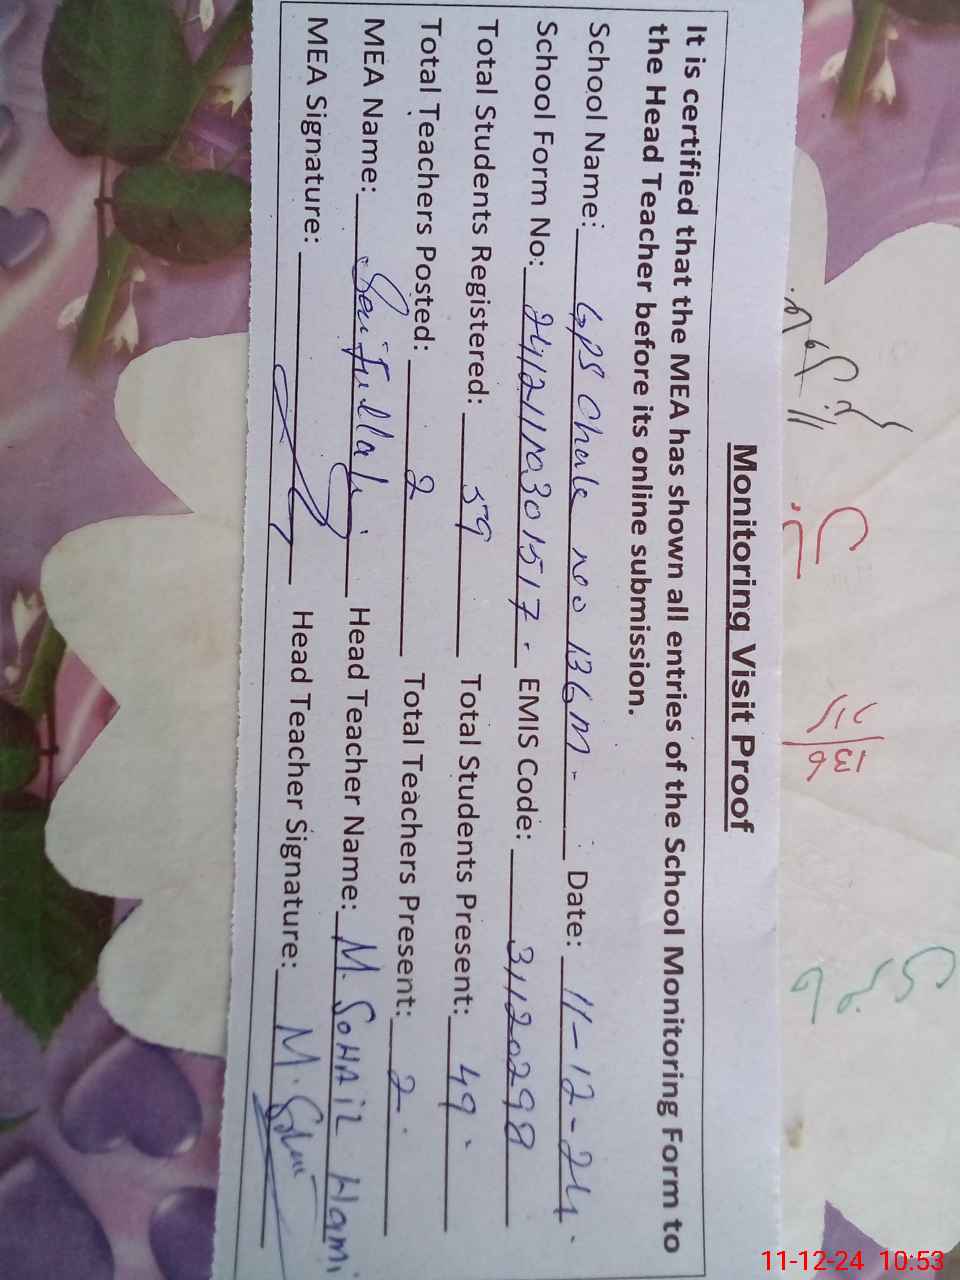 Monitoring Visit Proof
It is certified that the MEA has shown all entries of the School Monitoring Form to
the Head Teacher before its online submission.
School Name: GPS Chak no 136 m. Date: 11-12-24.
School Form No: 2412110301517. EMIS Code: 31120298
Total Students Registered: 59 Total Students Present: 49.
Total Teachers Posted: 2 Total Teachers Present: 2.
MEA Name: Saifullah Head Teacher Name: M. SOHAIL Hami
MEA Signature: Head Teacher Signature: M.
136
11-12-24 10:53